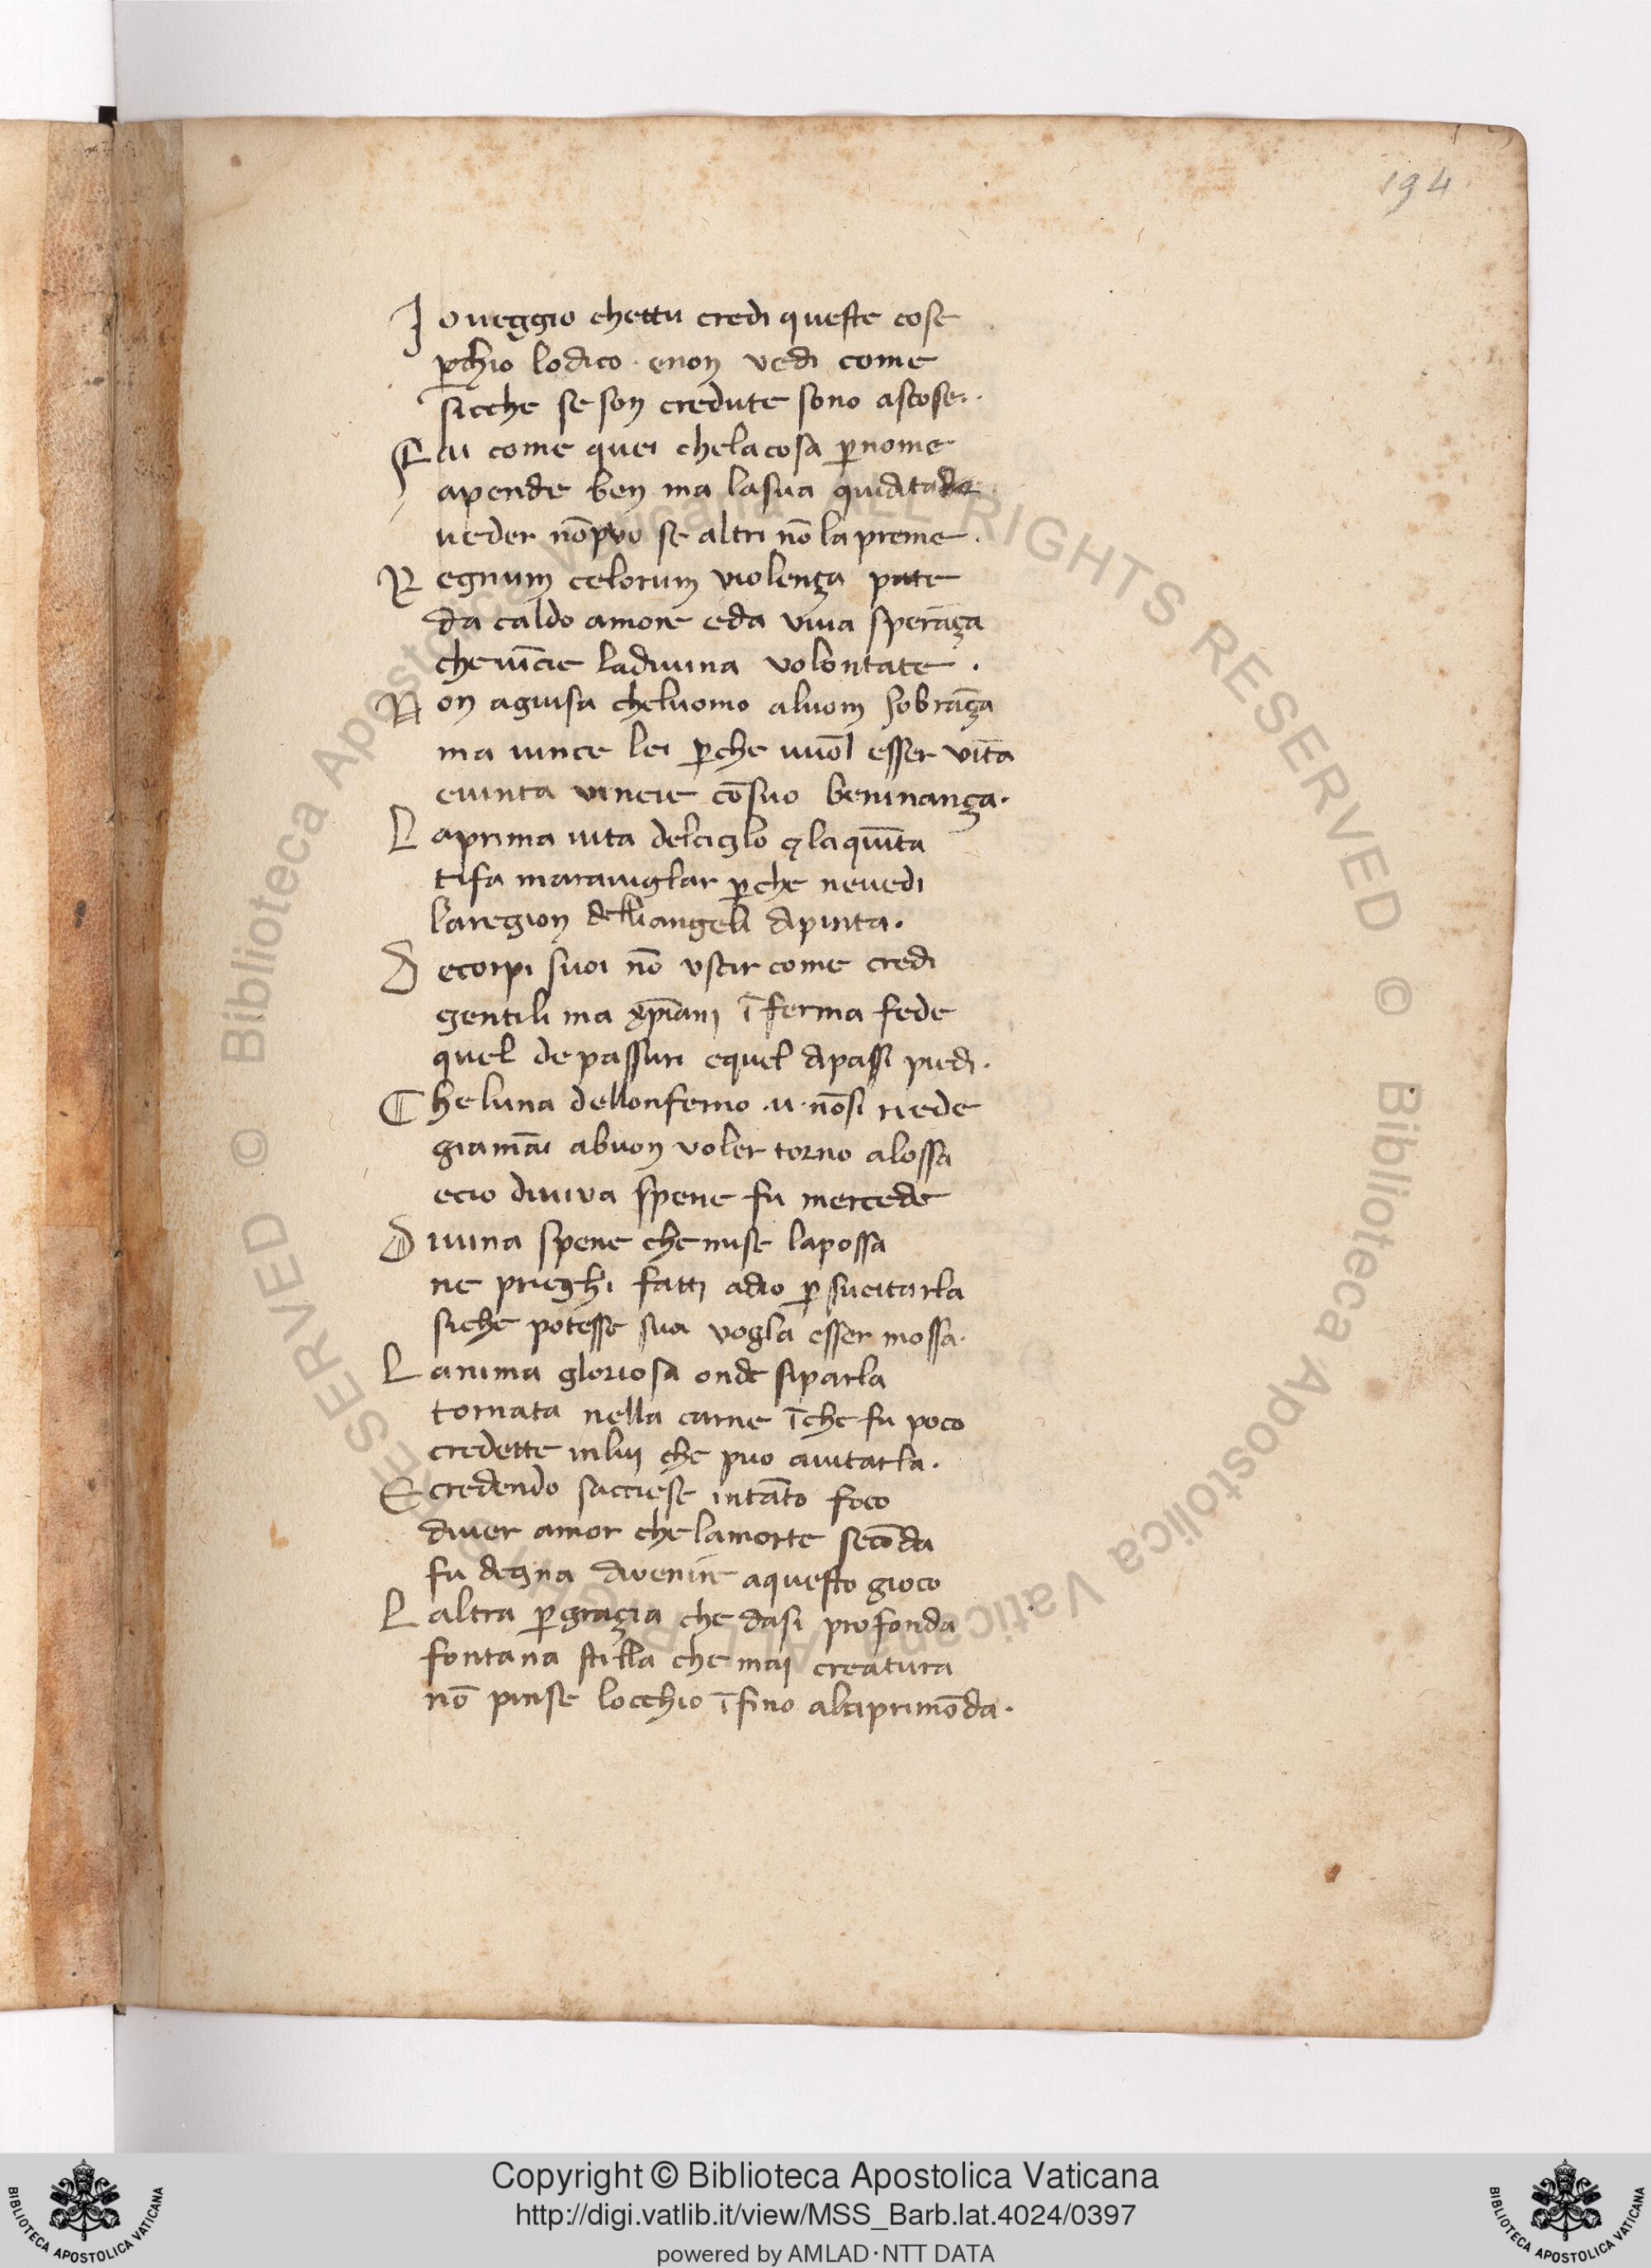 194
Io ueggio chettu credi queste cose
p̱chio lodico · enon vedi come
sicche se son credute sono ascose ·
Fai come quei chelacosa p̱nome
apende ben ma lasua quiditade
ueder nōpvo se altri nō la preme ·
Regnum celorum uiolença pate
da caldo amore eda uiua sperāça
cheuīcie ladiuina volontate ·
Non aguisa cheluomo aluom sobrāça
ma uince lei p̱che uuol esser vīta
euinta vincie cōsuo beninança ·
Laprima uita delciglo ꝫ laquīta
tifa marauiglar p̱che neuedi
laregion delliangeli dipinta ·
Decorpi suoi nō vscir come credi
gentili ma xp̄iani ī ferma fede
quel de passuri equel dipassi piedi ·
Cheluna dellonferno · u · nōsi riede
giamāi abuon voler torno alossa
ecio diuiva spene fu mercede
Diuina spene che mise lapossa
ne prieghi fatti adio p̱ sucitarla
siche potesse sua vogla esser mossa ·
Lanima gloriosa onde siparla
tornata nella carne īche fu poco
credette inlui che puo aiutarla ·
E credendo sacciese intāto foco
diuer amor che lamorte secōda
fu degna diuenire aquesto gioco
Laltra p̱graçia che dasi profonda
fontana stilla che mai creatura
nō pinse locchio īfino alaprimōda ·
Copyright © Biblioteca Apostolica Vaticana
http://digi.vatlib.it/view/MSS_Barb.lat.4024/0397
powered by AMLAD·NTT DATA
BIBLIOTECA APOSTOLICA VATICANA
BIBLIOTECA APOSTOLICA VATICANA
© Biblioteca Apostolica Vaticana ALL RIGHTS RESERVED © Biblioteca Apostolica Vaticana ALL RIGHTS RESERVED